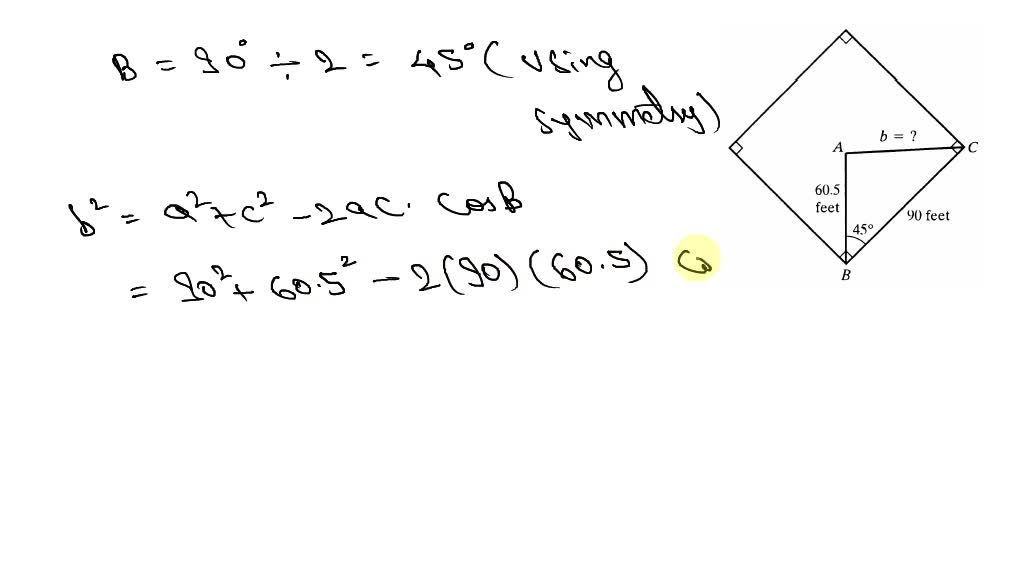 B = 90° ÷ 2 = 45° (using
symmetry)
b² = a² + c² - 2ac. cosB
= 90² + 60.5² - 2(90)(60.5) co
A
b = ?
C
60.5
feet
90 feet
45°
B